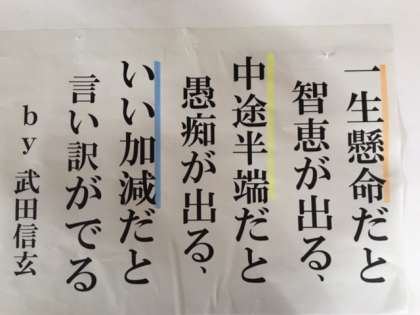 一生懸命だと
智恵が出る、
中途半端だと
愚痴が出る、
いい加減だと
言い訳がでる
by 武田信玄